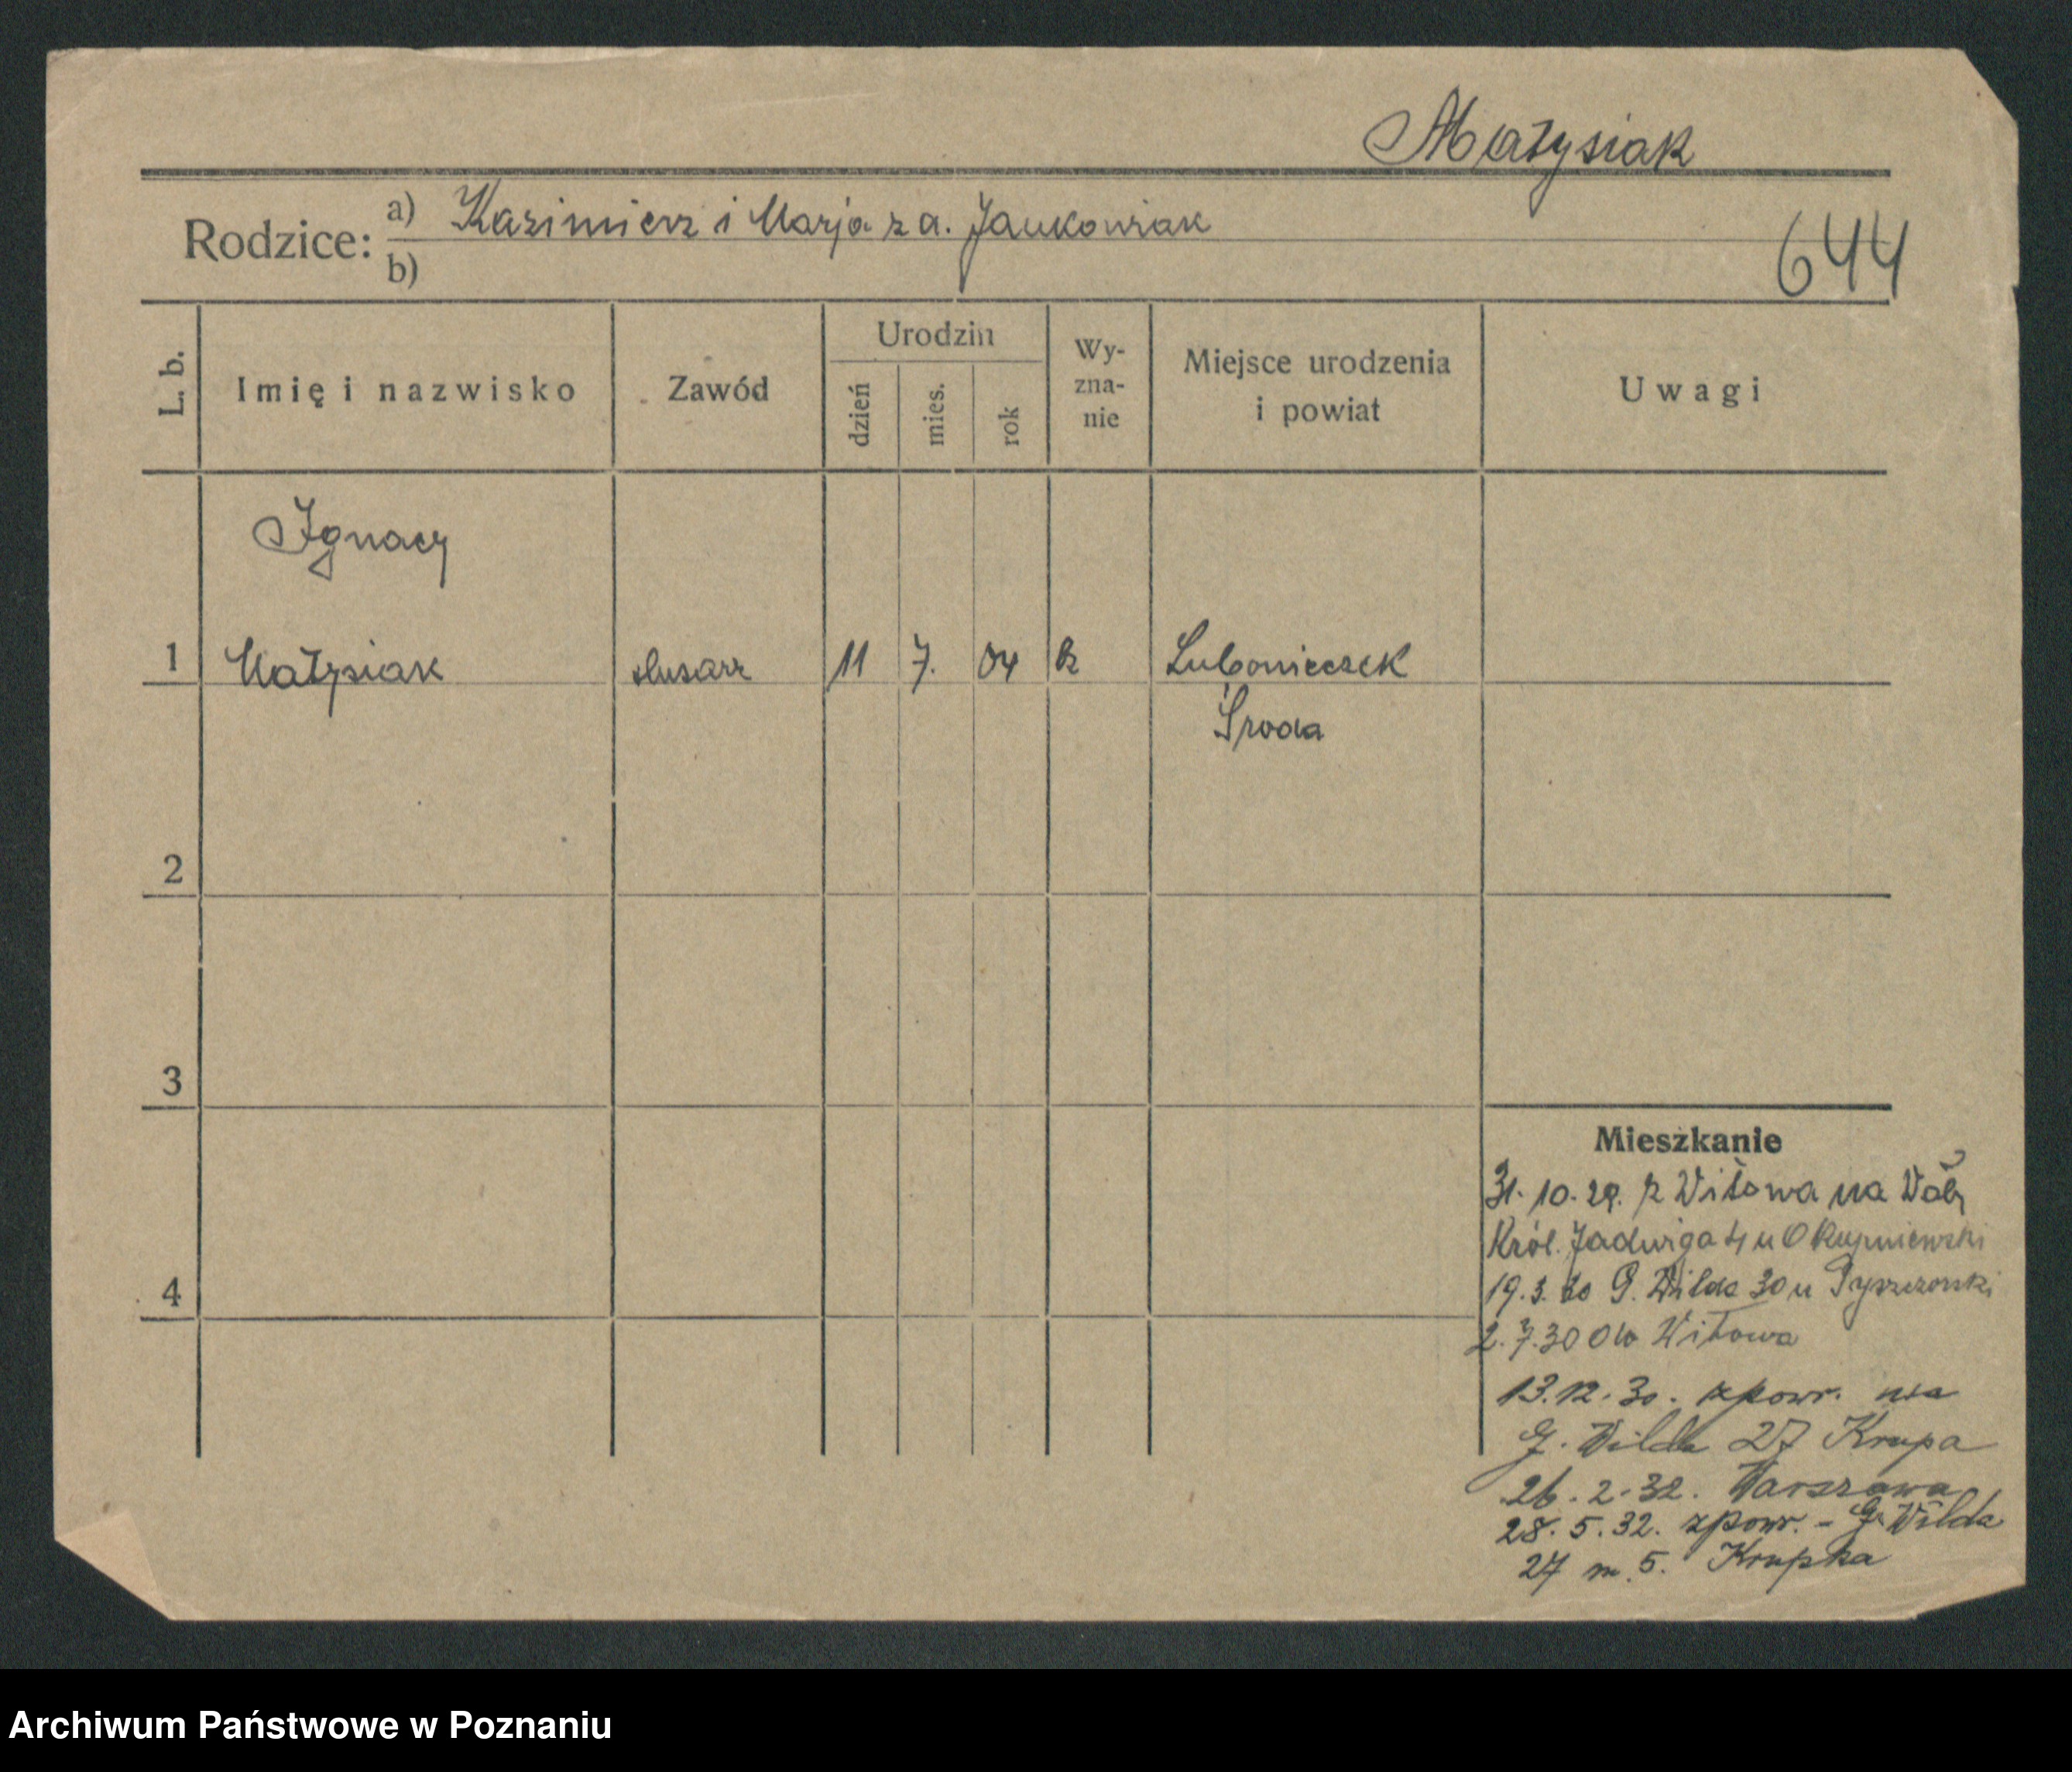 Matysiak
Rodzice: a) Kazimierz i Marja z d. Jankowiak
b)
644
L. b. Imię i nazwisko Zawód Urodzin dzień mies. rok Wy-zna-nie Miejsce urodzenia i powiat Uwagi
Ignacy
1 Matysiak ślusarz 11 7. 04 R Lubonieczek
Środa
2
3
4
Mieszkanie
31. 10. 29. z Witowa na
Król. Jadwiga 4 u
19. 3. 30 G. Wilda 30 u
2. 7. 30 do Witowa
13. 12. 30. zpowr. na
G. Wilda 27 Krupa
26. 2. 32. Warszawa
28. 5. 32. zpowr. - G. Wilda
27 m. 5. Krupka
Archiwum Państwowe w Poznaniu